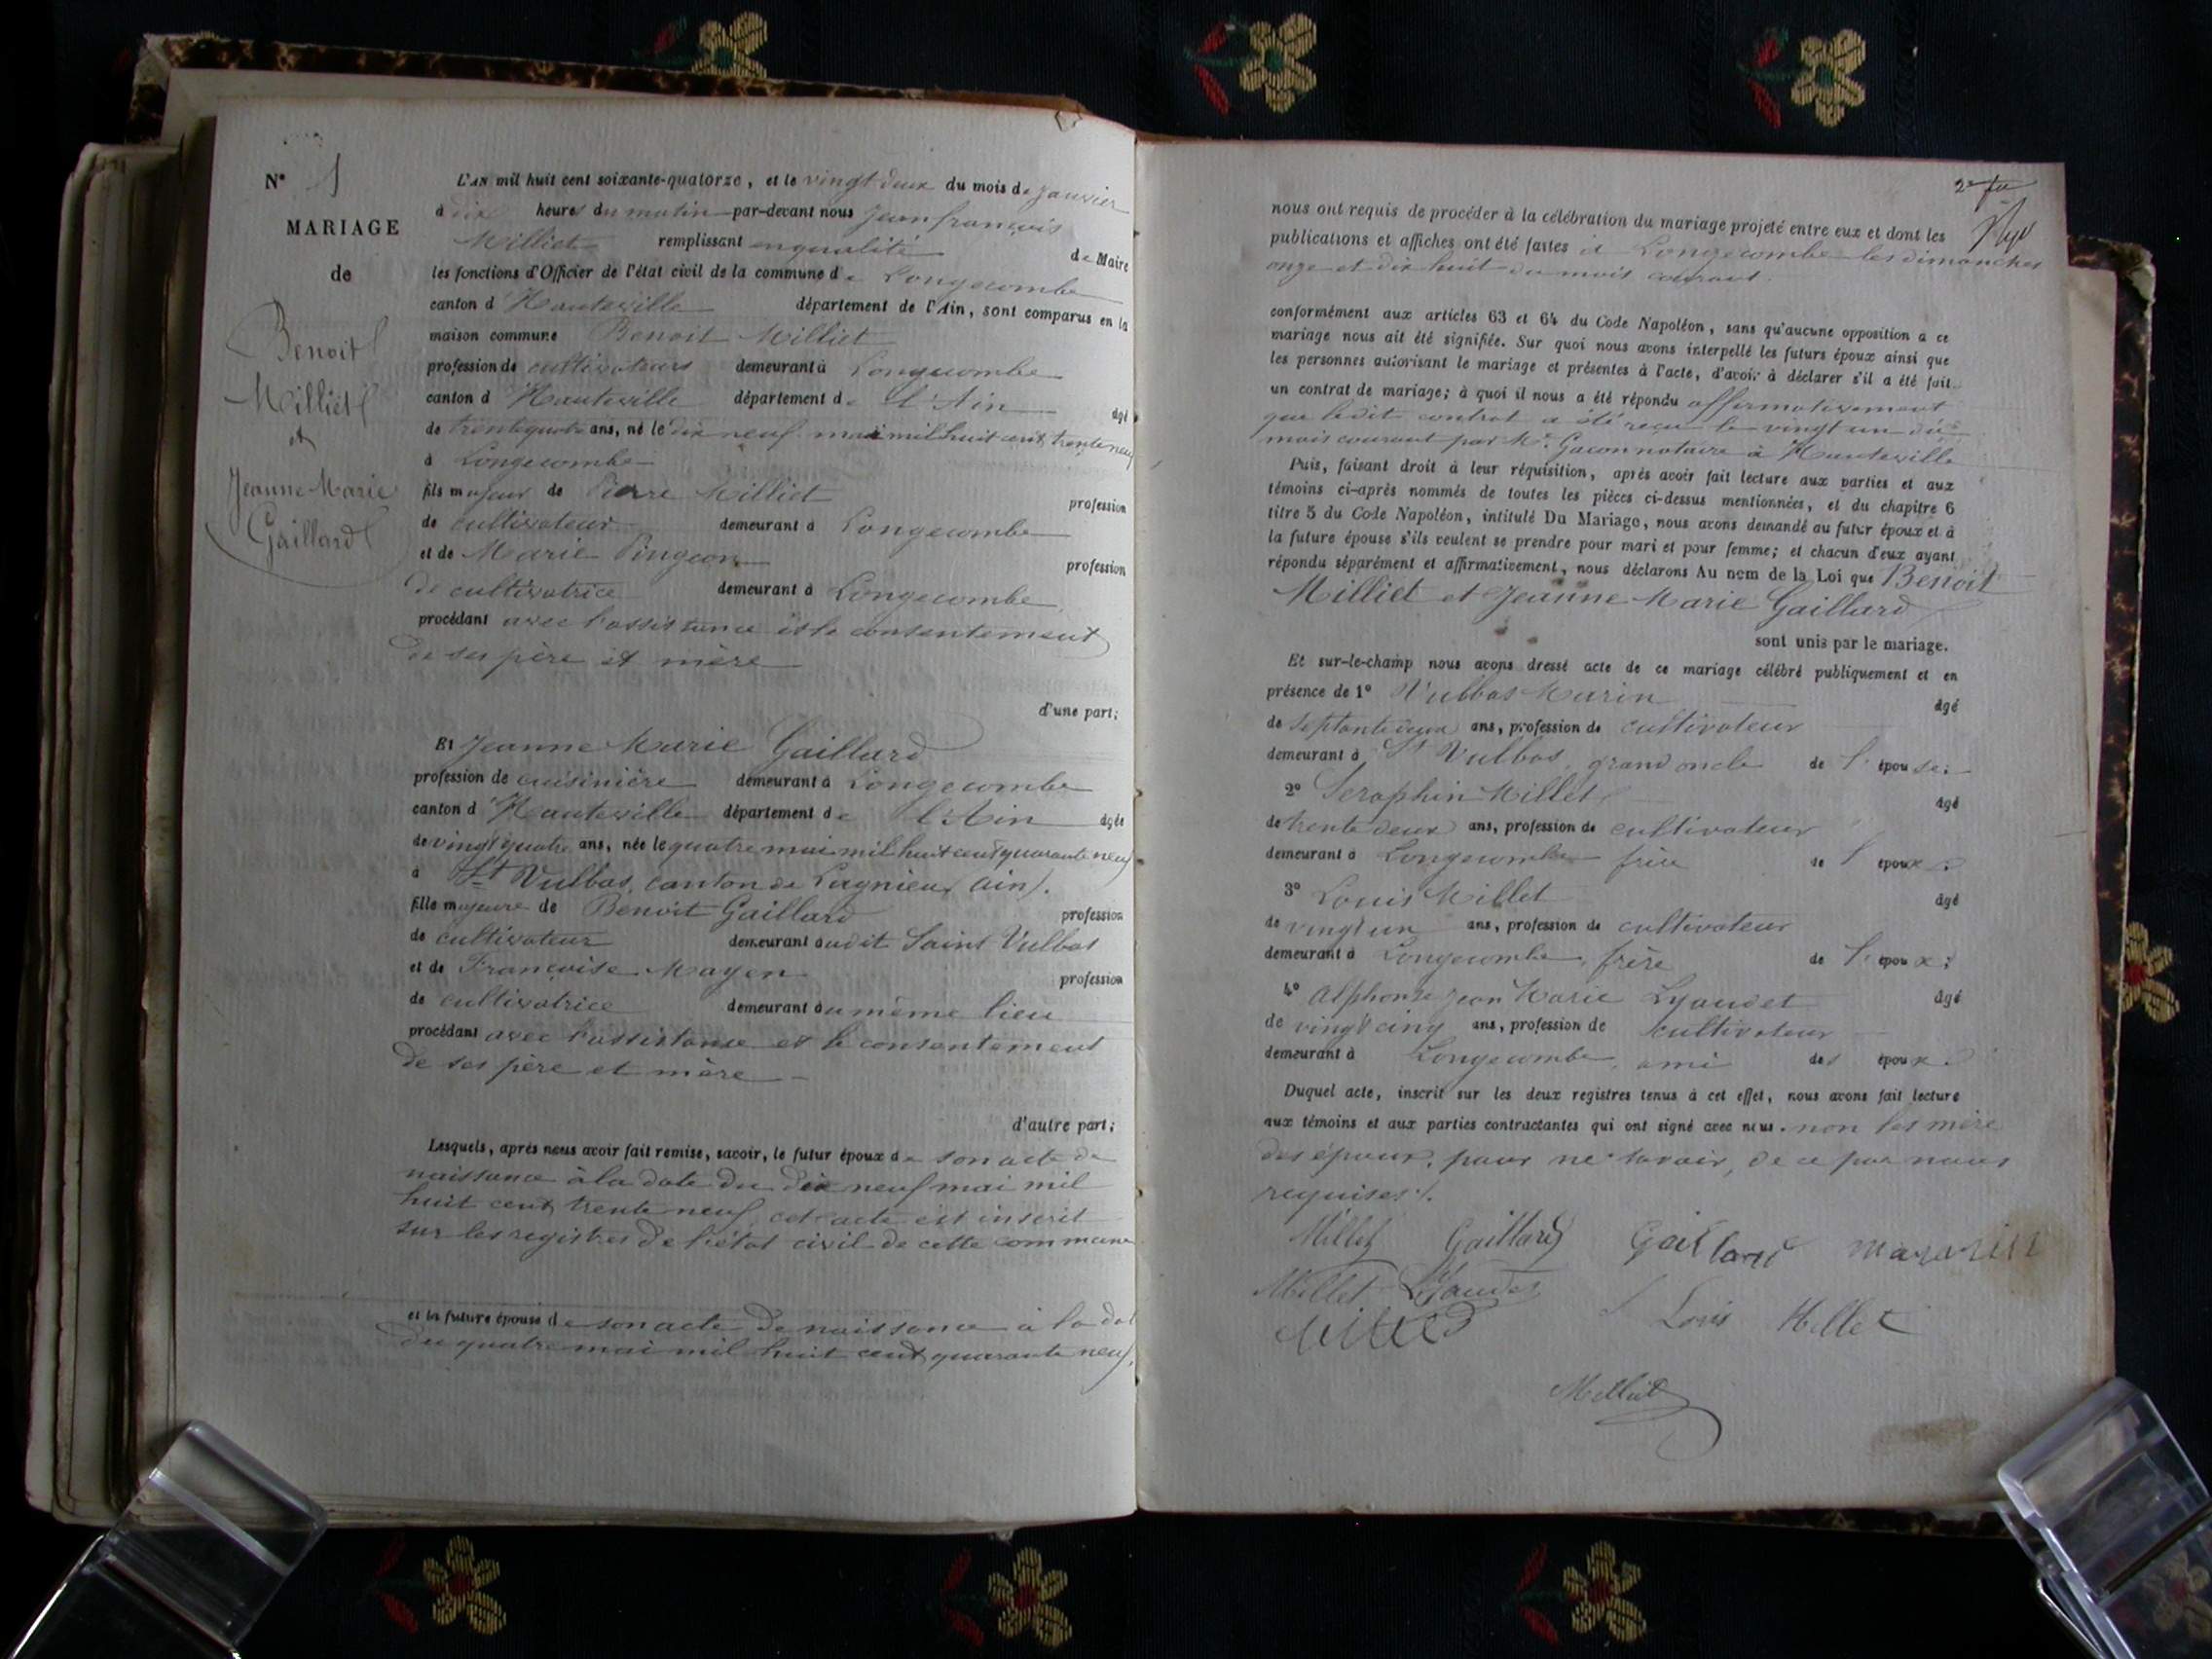 N° 1
MARIAGE
de
Benoit
Milliet
et
Jeanne Marie
Gaillard
L'AN mil huit cent soixante-quatorze, et le vingt deux du mois de janvier
à dix heures du matin par-devant nous Jean françois
Milliet remplissant en qualité de Maire
les fonctions d'Officier de l'état civil de la commune de Longecombe
canton d'Hauteville département de l'Ain, sont comparus en la
maison commune Benoit Milliet
profession de cultivateurs demeurant à Longecombe
canton d'Hauteville département de l'Ain âgé
de trente quatre ans, né le dix neuf mai mil huit cent trente neuf
à Longecombe
fils majeur de Pierre Milliet profession
de cultivateur demeurant à Longecombe
et de Marie Pingeon profession
de cultivatrice demeurant à Longecombe
procédant avec l'assistance et le consentement
de ses père et mère
d'une part;
Et Jeanne Marie Gaillard
profession de cuisinière demeurant à Longecombe
canton d'Hauteville département de l'Ain âgée
de vingt quatre ans, née le quatre mai mil huit cent quarante neuf
à St Vulbas, canton de Lagnieu (Ain).
fille majeure de Benoit Gaillard profession
de cultivateur demeurant audit Saint Vulbas
et de Françoise Mayen profession
de cultivatrice demeurant au même lieu
procédant avec l'assistance et le consentement
de ses père et mère
d'autre part;
Lesquels, après nous avoir fait remise, savoir, le futur époux de son acte de
naissance à la date du dix neuf mai mil
huit cent trente neuf, cet acte est inscrit
sur les registres de l'état civil de cette commune
et la future épouse de son acte de naissance à la dat
du quatre mai mil huit cent quarante neuf,
nous ont requis de procéder à la célébration du mariage projeté entre eux et dont les
publications et affiches ont été faites à Longecombe les dimanches
onze et dix huit du mois courant
conformément aux articles 63 et 64 du Code Napoléon, sans qu'aucune opposition a ce
mariage nous ait été signifiée. Sur quoi nous avons interpellé les futurs époux ainsi que
les personnes autorisant le mariage et présentes à l'acte, d'avoir à déclarer s'il a été fait
un contrat de mariage; à quoi il nous a été répondu affirmativement
que ledit contrat a été reçu le vingt un du
mois courant par Me Gacon notaire à Hauteville
Puis, faisant droit à leur réquisition, après avoir fait lecture aux parties et aux
témoins ci-après nommés de toutes les pièces ci-dessus mentionnées, et du chapitre 6
titre 5 du Code Napoléon, intitulé Du Mariage, nous avons demandé au futur époux et à
la future épouse s'ils veulent se prendre pour mari et pour femme; et chacun d'eux ayant
répondu séparément et affirmativement, nous déclarons Au nom de la Loi que Benoit
Milliet et Jeanne Marie Gaillard
sont unis par le mariage.
Et sur-le-champ nous avons dressé acte de ce mariage célébré publiquement et en
présence de 1° Vulbas Marin âgé
de ans, profession de cultivateur
demeurant à St Vulbas, grand oncle de l'épouse;
2° Seraphin Millet âgé
de trente deux ans, profession de cultivateur
demeurant à Longecombe frère de l'époux;
3° Louis Millet âgé
de vingt un ans, profession de cultivateur
demeurant à Longecombe, frère de l'époux;
4° Alphonse Jean Marie Lyaudet âgé
de vingt cinq ans, profession de cultivateur
demeurant à Longecombe, ami des époux
Duquel acte, inscrit sur les deux registres tenus à cet effet, nous avons fait lecture
aux témoins et aux parties contractantes qui ont signé avec nous. non les mère
des époux, pour ne savoir, de ce par nous
requises.
Millet Gaillard Gaillard
Millet Lyaudet
Louis Millet
Milliet